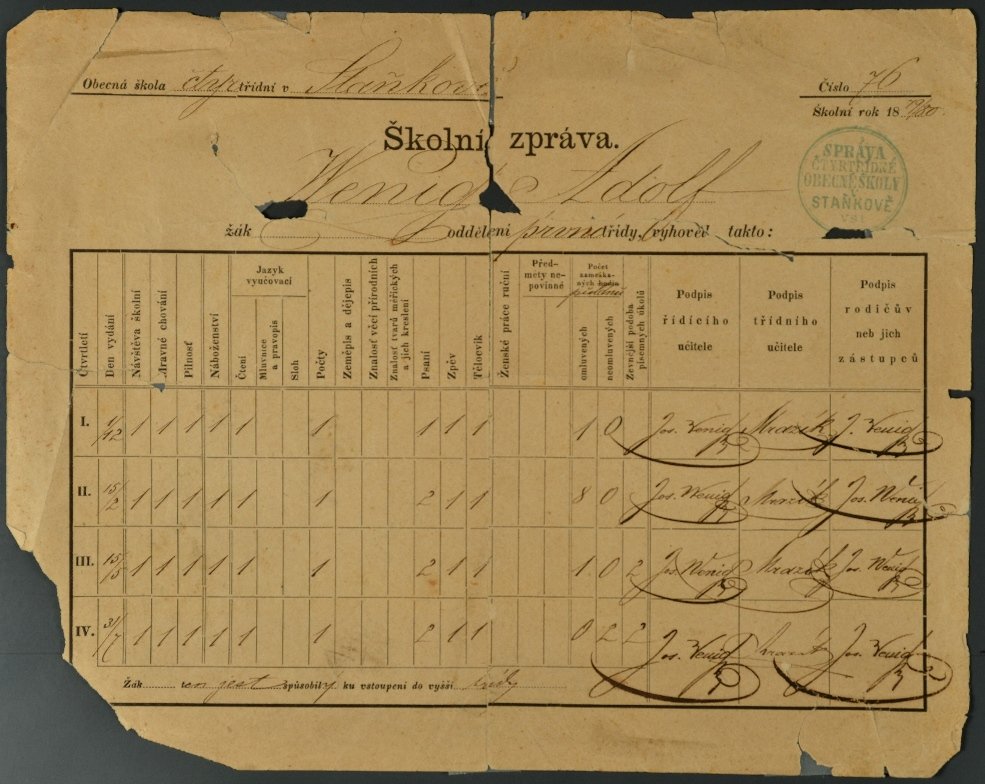 Obecná škola čtyrtřídní v Staňkově
Číslo 76
Školní rok 1879/80.
Školní zpráva.
SPRÁVA
ČTYRTŘÍDNÉ
OBECNÉ ŠKOLY
V
STAŇKOVĚ
VSI
Wenig Adolf
žák oddělení první třídy, vyhověl takto:
Čtvrtletí
Den vydání
Návštěva školní
Mravné chování
Pilnosť
Náboženství
Jazyk
vyučovací
Čtení
Mluvnice
a pravopis
Sloh
Počty
Zeměpis a dějepis
Znalosť věcí přírodních
Znalosť tvarů měřických
a jich kreslení
Psaní
Zpěv
Tělocvik
Ženské práce ruční
Před-
měty ne-
povinné
Počet
zameška-
ných hodin
půldnů
omluvených
neomluvených
Zevnější podoba
písemných úkolů
Podpis
řídícího
učitele
Podpis
třídního
učitele
Podpis
rodičův
neb jich
zástupců
I. 1/12 1 1 1 1 1 1 1 1 1 1 0 Jos. Wenig Mrazík J. Wenig
II. 15/2 1 1 1 1 1 1 2 1 1 8 0 Jos. Wenig Mrazík Jos. Wenig
III. 15/5 1 1 1 1 1 1 2 1 1 1 0 2 Jos. Wenig Mrazík Jos. Wenig
IV. 31/7 1 1 1 1 1 1 2 1 1 0 2 2 Jos. Wenig Mrazík Jos. Wenig
Žák ten jest spůsobilý ku vstoupení do vyšší třídy